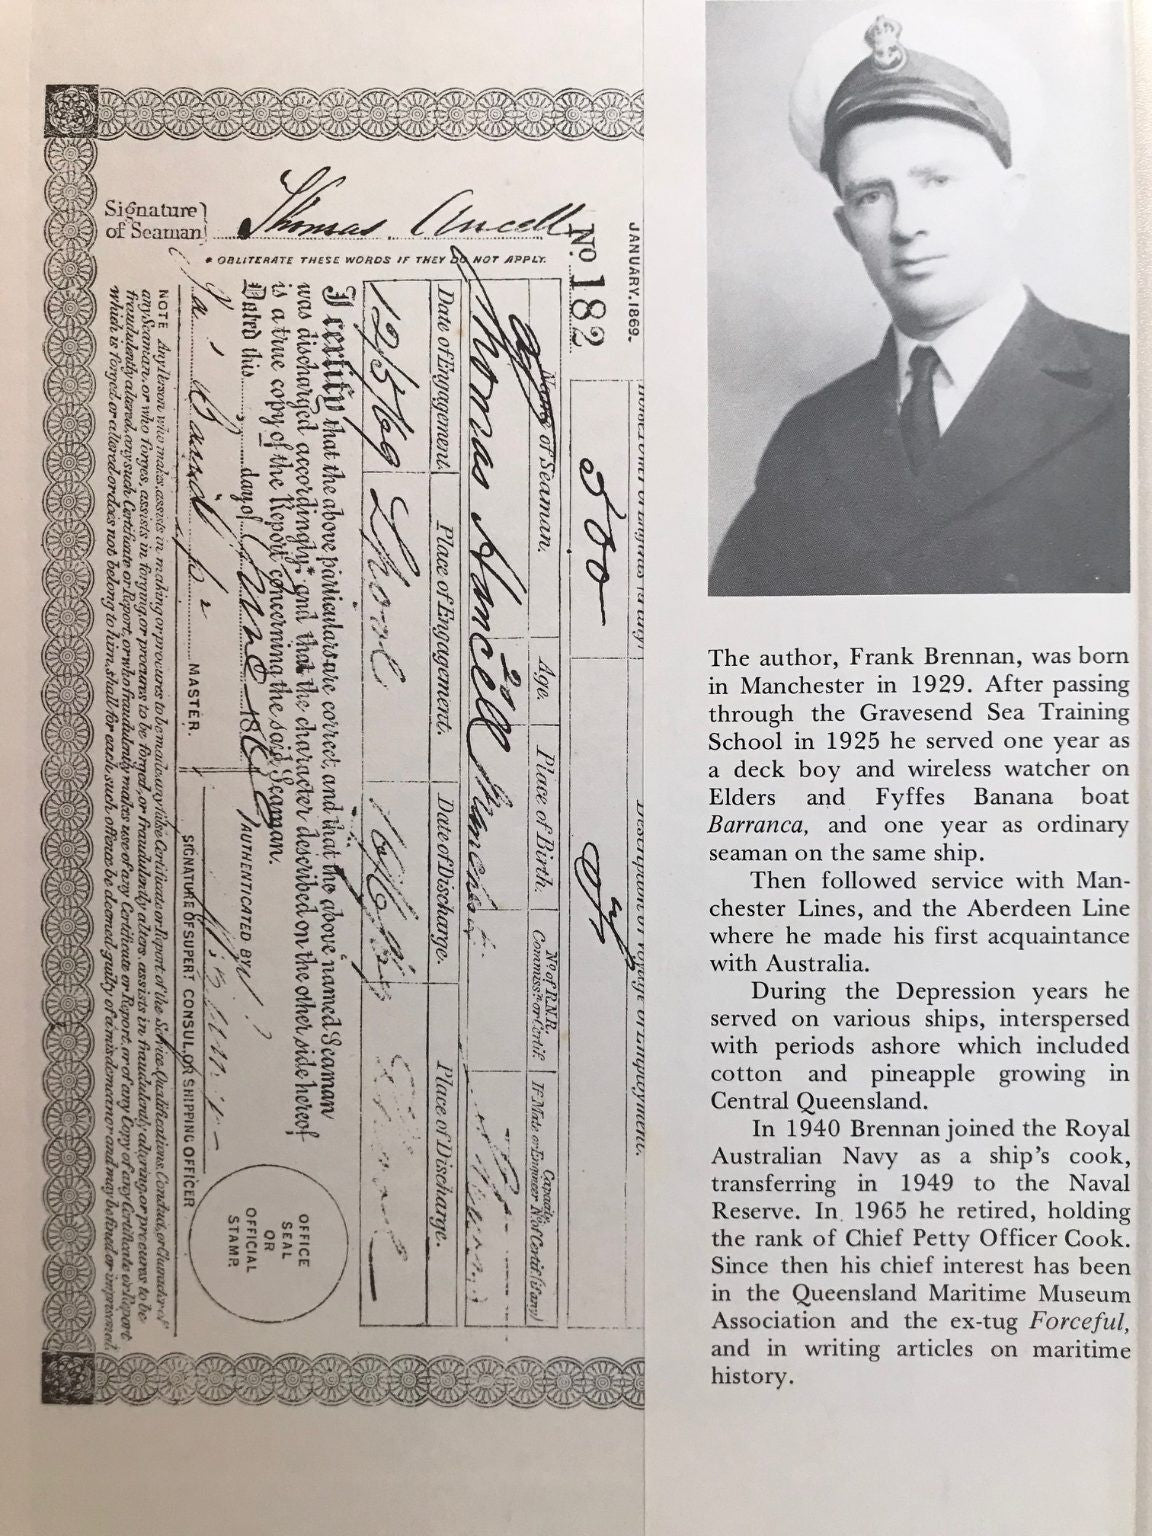 Signature
of Seaman
Thomas Ancell
* OBLITERATE THESE WORDS IF THEY DO NOT APPLY.
JANUARY, 1869.
No. 182
500
Description of Voyage or Employment.
Name of Seaman.
Age.
Place of Birth.
No. of R.N.R. Commissn. or Certif.
Capacity.
If Mate or Engineer No. of Certif (if any)
Thomas Ancell
Date of Engagement.
Place of Engagement.
Date of Discharge.
Place of Discharge.
12/5/69
I certify that the above particulars are correct, and that the above named Seaman
was discharged accordingly,* and that the character described on the other side hereof
is a true copy of the Report concerning the said Seaman.
Dated this
day of
June
186
AUTHENTICATED BY
MASTER.
SIGNATURE OF SUPERT. CONSUL, OR SHIPPING OFFICER
OFFICE
SEAL
OR
OFFICIAL
STAMP.
NOTE Any Person who makes, assists in making or procures to be made any false Certificate or Report of the Service Qualifications, Conduct, or Character of
any Seaman, or who forges, assists in forging or procures to be forged, or fraudulently alters, assists in fraudulently altering, or procures to be
fraudulently altered, any such Certificate or Report, or who fraudulently makes use of any Certificate or Report, or of any Copy of any Certificate or Report
which is forged or altered or does not belong to him, shall for each such offence be deemed guilty of a misdemeanor and may be fined or imprisoned.
The author, Frank Brennan, was born
in Manchester in 1929. After passing
through the Gravesend Sea Training
School in 1925 he served one year as
a deck boy and wireless watcher on
Elders and Fyffes Banana boat
Barranca, and one year as ordinary
seaman on the same ship.
Then followed service with Man-
chester Lines, and the Aberdeen Line
where he made his first acquaintance
with Australia.
During the Depression years he
served on various ships, interspersed
with periods ashore which included
cotton and pineapple growing in
Central Queensland.
In 1940 Brennan joined the Royal
Australian Navy as a ship's cook,
transferring in 1949 to the Naval
Reserve. In 1965 he retired, holding
the rank of Chief Petty Officer Cook.
Since then his chief interest has been
in the Queensland Maritime Museum
Association and the ex-tug Forceful,
and in writing articles on maritime
history.